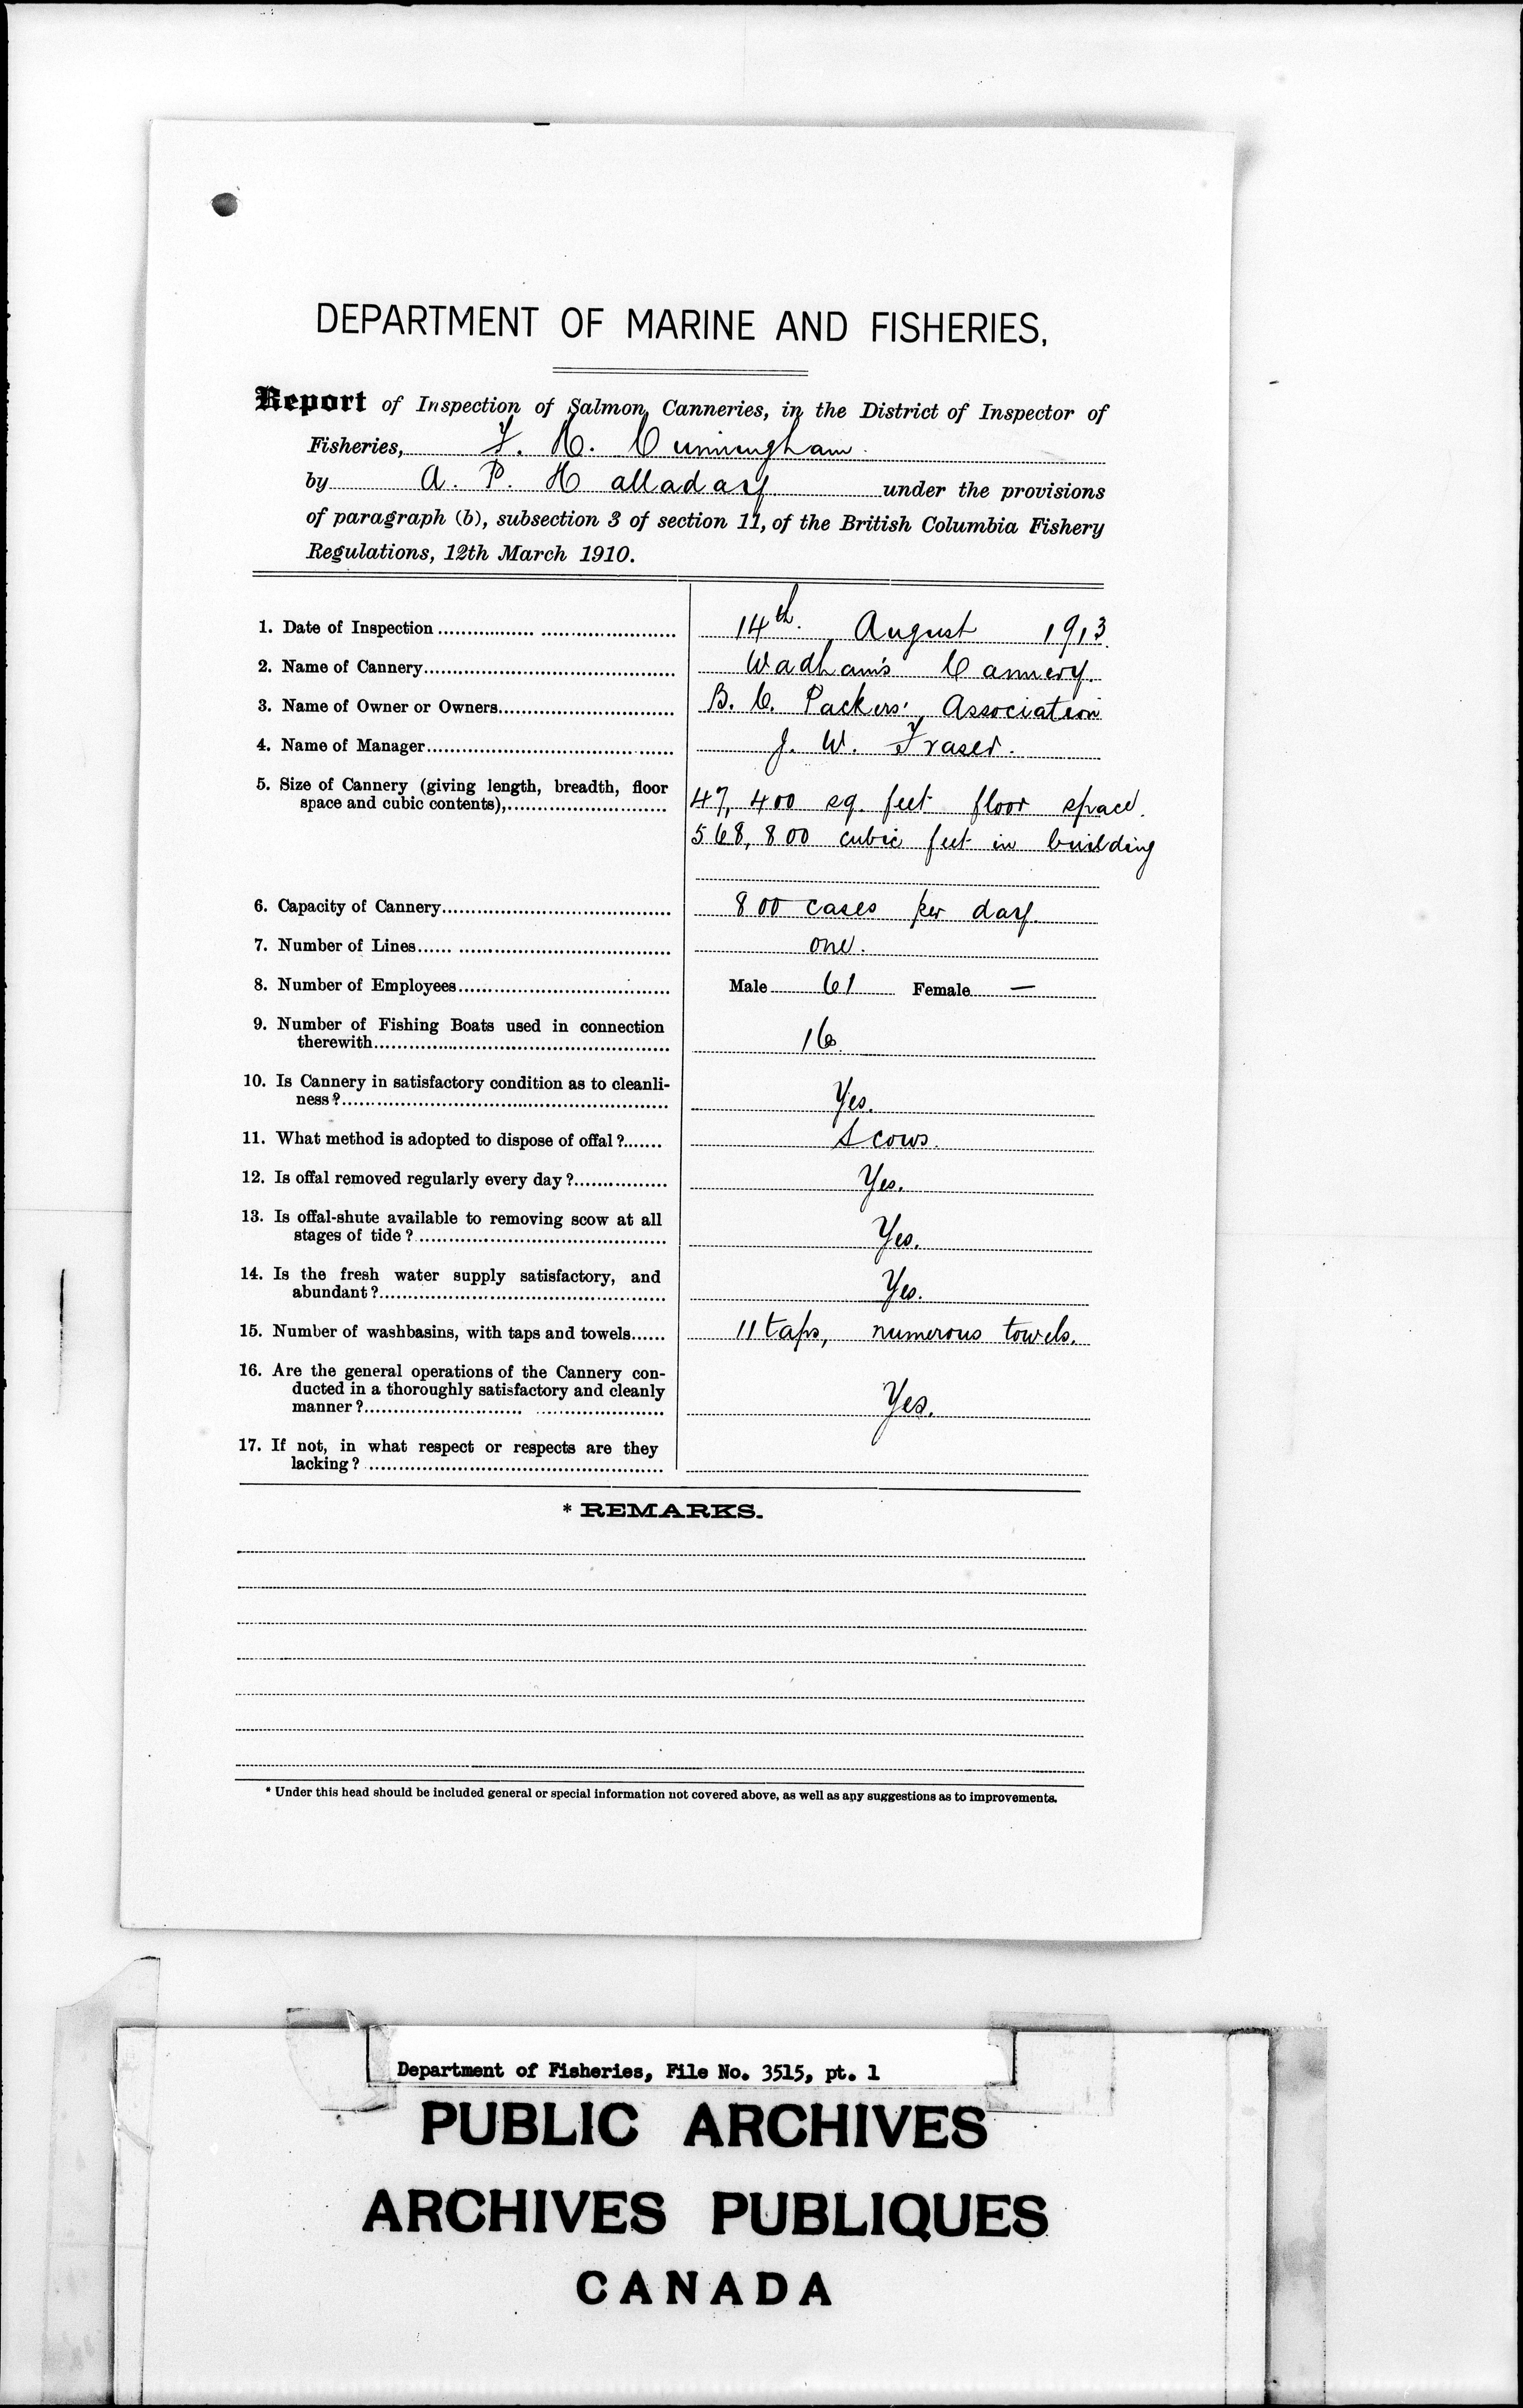 DEPARTMENT OF MARINE AND FISHERIES,
Report of Inspection of Salmon Canneries, in the District of Inspector of
Fisheries, F. H. Cunningham.
by A. P. Halladay under the provisions
of paragraph (b), subsection 3 of section 11, of the British Columbia Fishery
Regulations, 12th March 1910.
1. Date of Inspection 14th. August 1913.
2. Name of Cannery Wadham's Cannery.
3. Name of Owner or Owners B. C. Packers' Association
4. Name of Manager J. W. Fraser.
5. Size of Cannery (giving length, breadth, floor
space and cubic contents), 47,400 sq. feet floor space.
568,800 cubic feet in building
6. Capacity of Cannery 800 cases per day.
7. Number of Lines one.
8. Number of Employees Male 61 Female —
9. Number of Fishing Boats used in connection
therewith 16.
10. Is Cannery in satisfactory condition as to cleanli-
ness? Yes.
11. What method is adopted to dispose of offal? Scows.
12. Is offal removed regularly every day? Yes.
13. Is offal-shute available to removing scow at all
stages of tide? Yes.
14. Is the fresh water supply satisfactory, and
abundant? Yes.
15. Number of washbasins, with taps and towels 11 taps, numerous towels.
16. Are the general operations of the Cannery con-
ducted in a thoroughly satisfactory and cleanly
manner? Yes.
17. If not, in what respect or respects are they
lacking?
* REMARKS.
* Under this head should be included general or special information not covered above, as well as any suggestions as to improvements.
Department of Fisheries, File No. 3515, pt. 1
PUBLIC ARCHIVES
ARCHIVES PUBLIQUES
CANADA